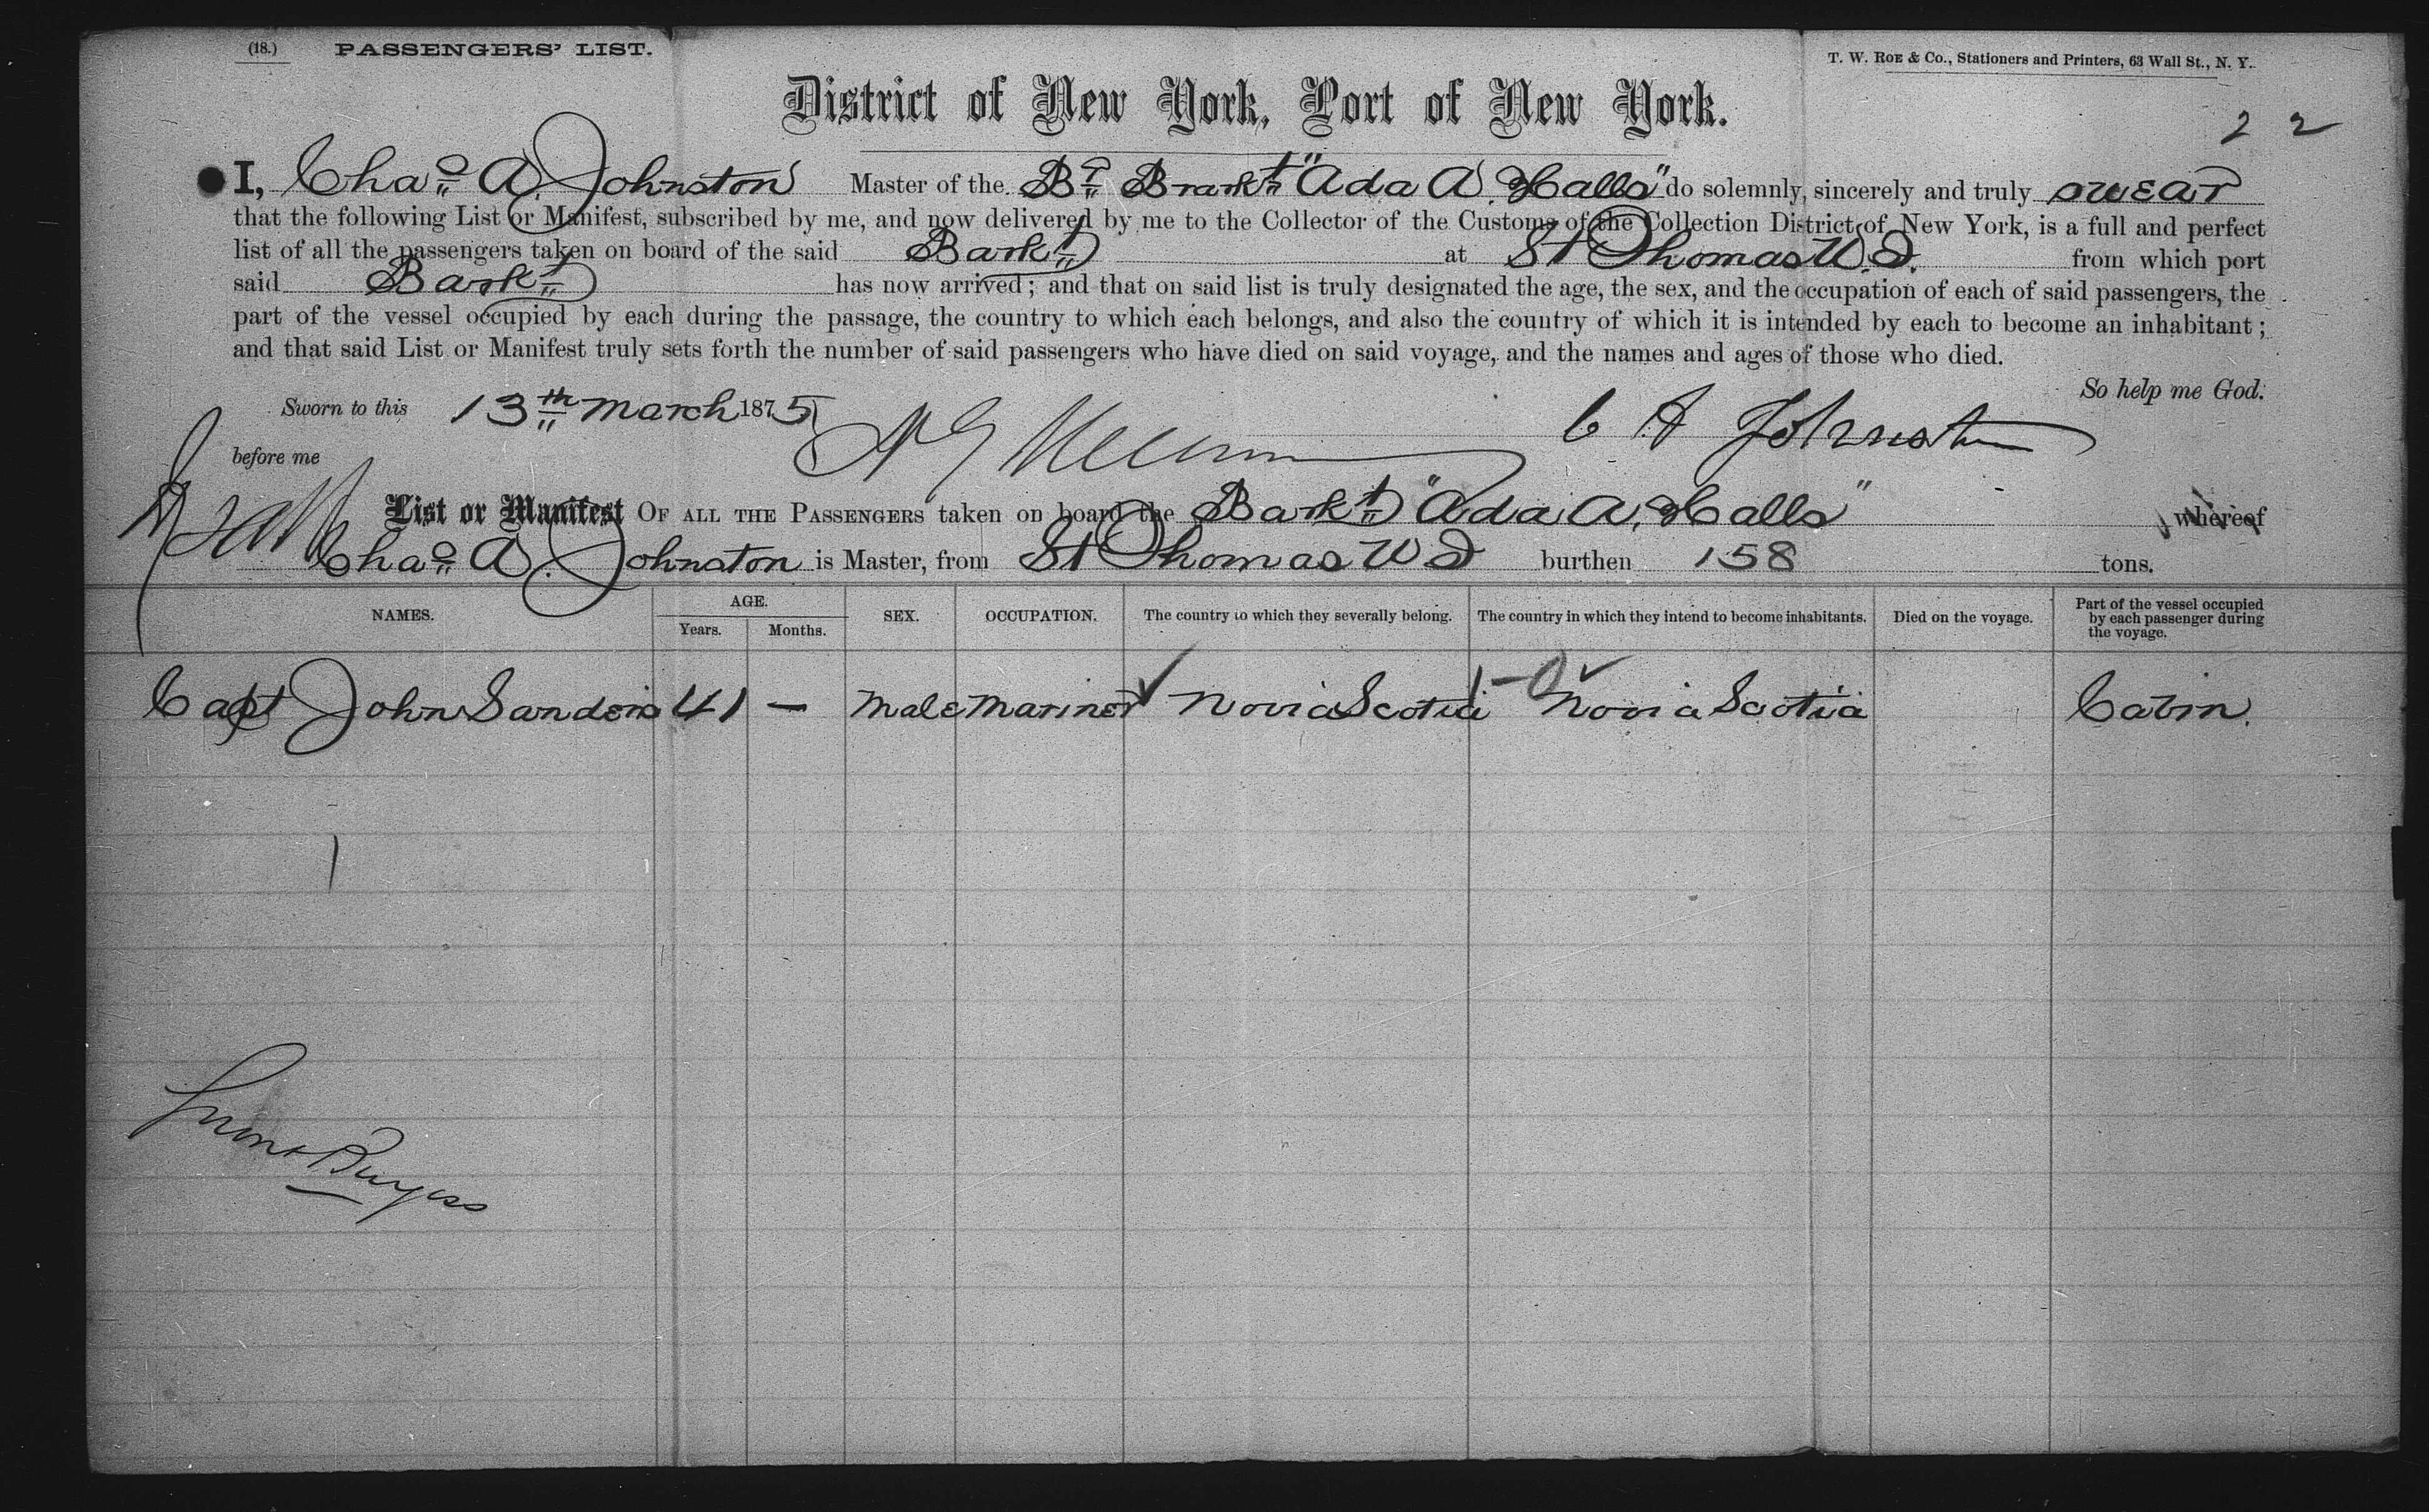 (18.) PASSENGERS' LIST.
T. W. ROE & Co., Stationers and Printers, 63 Wall St., N. Y.
District of New York, Port of New York.
2 2
I, Chas A. Johnston Master of the Br Brarkt "Ada A. Halls" do solemnly, sincerely and truly swear
that the following List or Manifest, subscribed by me, and now delivered by me to the Collector of the Customs of the Collection District of New York, is a full and perfect
list of all the passengers taken on board of the said Barkt at St Thomas W.I. from which port
said Barkt has now arrived; and that on said list is truly designated the age, the sex, and the occupation of each of said passengers, the
part of the vessel occupied by each during the passage, the country to which each belongs, and also the country of which it is intended by each to become an inhabitant;
and that said List or Manifest truly sets forth the number of said passengers who have died on said voyage, and the names and ages of those who died.
So help me God.
Sworn to this 13th March 1875
C A Johnston
before me
List or Manifest OF ALL THE PASSENGERS taken on board the Barkt "Ada A. Halls" whereof
Chas A. Johnston is Master, from St Thomas W I burthen 158 tons.
NAMES. AGE. SEX. OCCUPATION. The country to which they severally belong. The country in which they intend to become inhabitants. Died on the voyage. Part of the vessel occupied by each passenger during the voyage.
Years. Months.
Capt John Sanders 41 — Male Mariner Novia Scotia 1-0 Novia Scotia Cabin.
1
Burgess